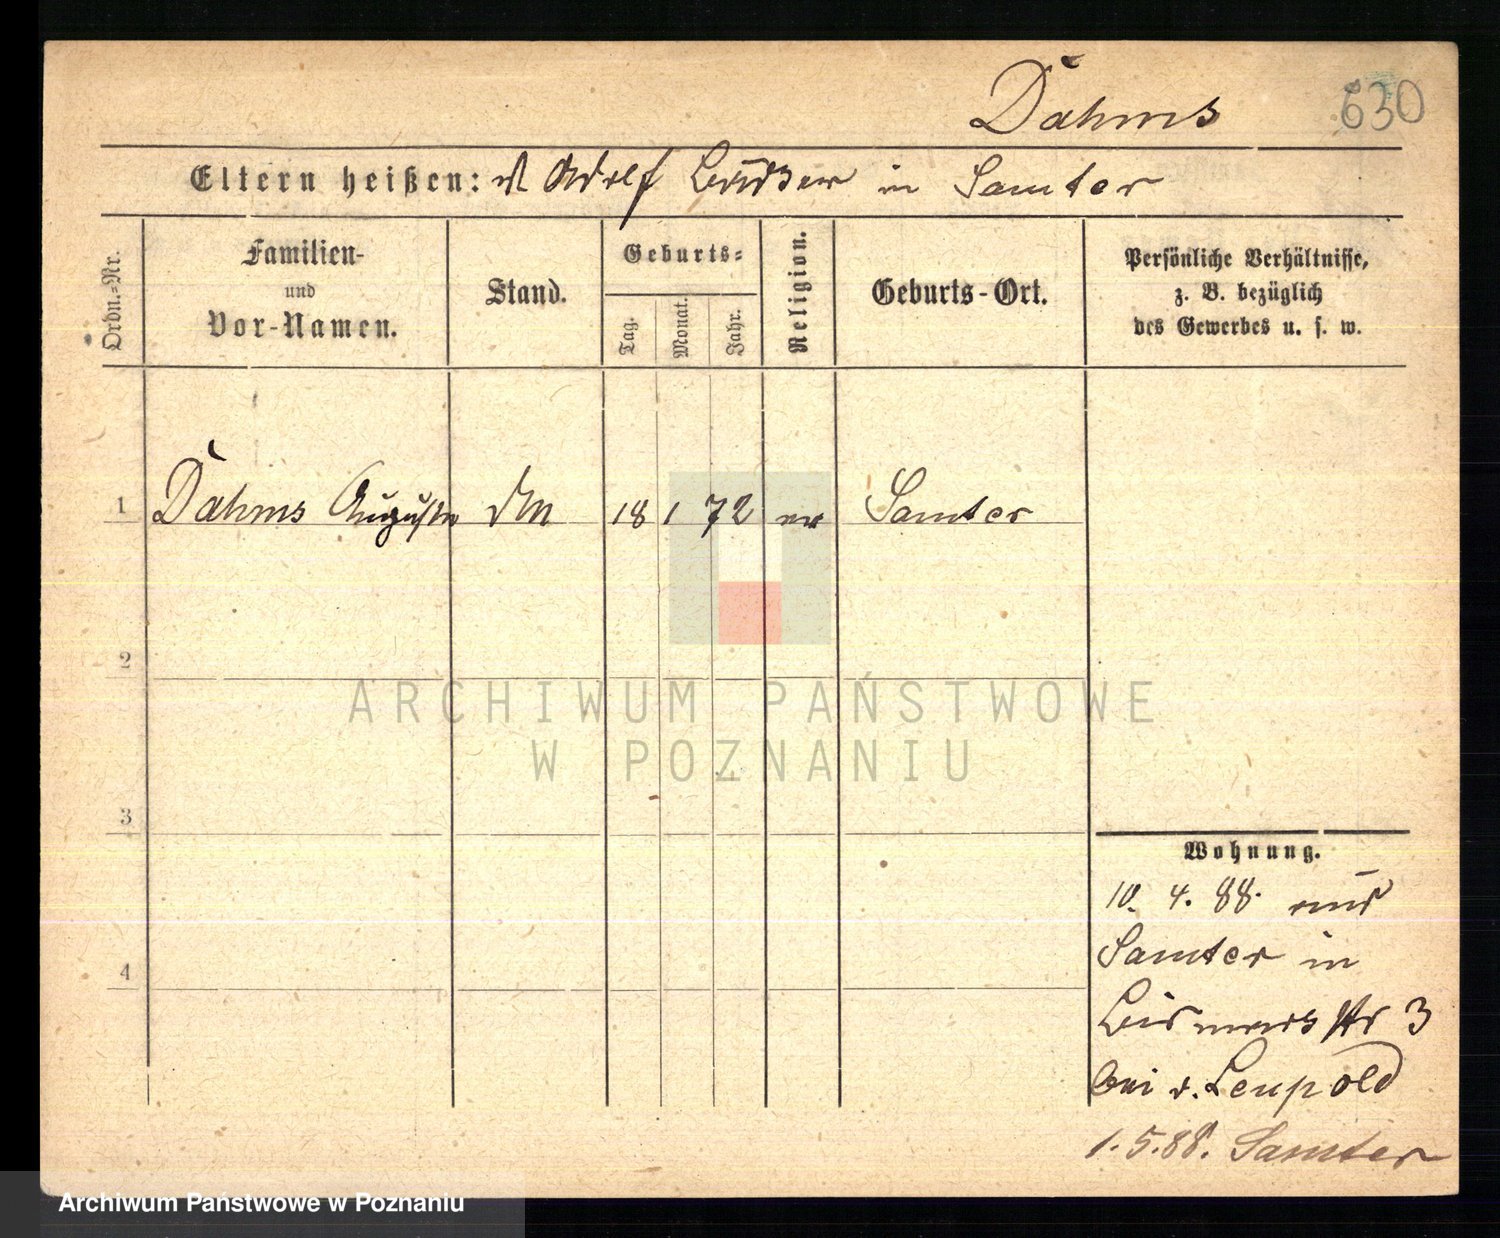 Dahms
630
Eltern heißen: Adolf in Samter
Ordn.-Nr.
Familien-
und
Vor-Namen.
Stand.
Geburts-
Tag.
Monat.
Jahr.
Religion.
Geburts-Ort.
Persönliche Verhältnisse,
z. B. bezüglich
des Gewerbes u. s. w.
1 Dahms Auguste 18 1 72 ev Samter
2
ARCHIWUM PAŃSTWOWE
W POZNANIU
3
4
Wohnung.
10. 4. 88. aus
Samter in
Bismarkstr 3
bei v. Leupold
1.5.88. Samter
Archiwum Państwowe w Poznaniu